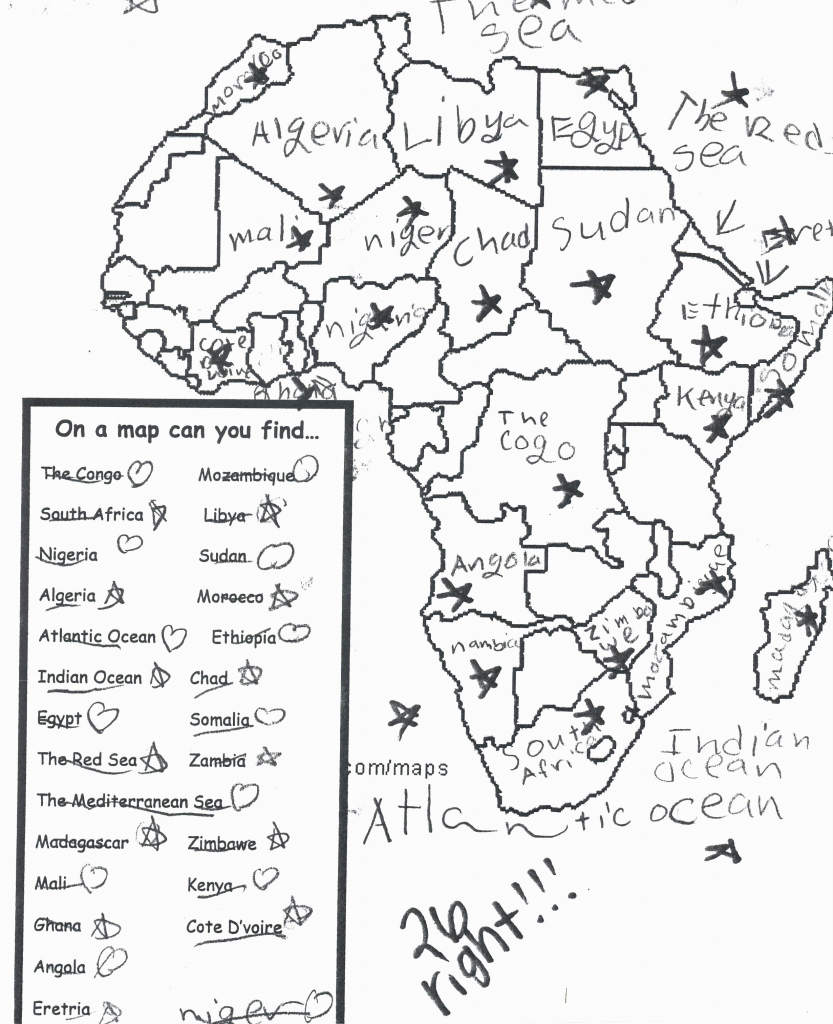 The
sea
Morocco
Algeria
Libya
Egypt
The Red
sea
mali
niger
Chad
Sudan
Ethiopia
Somalia
nigeria
cote
Ghana
Kenya
The
Cogo
Angola
Zimba
we
mozambique
nambia
madagascar
South
Africa
Indian
ocean
com/maps
Atlantic ocean
26
right!!!
On a map can you find...
The Congo Mozambique
South Africa Libya
Nigeria Sudan
Algeria Morocco
Atlantic Ocean Ethiopia
Indian Ocean Chad
Egypt Somalia
The Red Sea Zambia
The Mediterranean Sea
Madagascar Zimbawe
Mali Kenya
Ghana Cote D'voire
Angola
Eretria niger